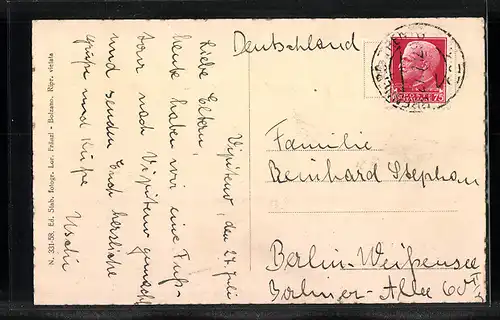 Deutschland
Vipiteno, den 27. Juli
Liebe Eltern,
heute haben wir eine Fuß-
tour nach Vipiteno gemacht
und senden Euch herzliche
Grüße und Küsse
Uschi
Familie
Reinhard Stephan
Berlin-Weißensee
Berliner-Allee 60
N. 331-58. Ed. Stab. fotogr. Lor. Fränzl - Bolzano. Ripr. vietata
75